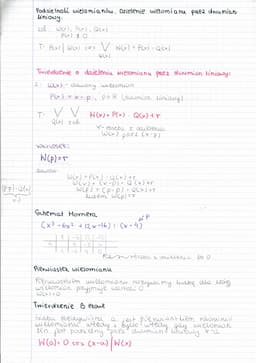 Podzielność wielomianów. Dzielenie wielomianu przez dwumian
liniowy.
zał. W(x), P(x), Q(x)
P(x) ≢ 0
T: P(x) | W(x) <=> V W(x) = P(x) · Q(x)
Q(x)
Twierdzenie o dzieleniu wielomianu przez dwumian liniowy:
W(x) - dowolny wielomian
P(x) = x - p, p∈R (dwumian liniowy)
T: V V W(x) = P(x) · Q(x) + r
Q(x) r∈R
r - reszta z dzielenia
W(x) przez (x-p)
Wniosek:
W(p) = r
W(x) = P(x) · Q(x) + r
W(x) = (x-p) · Q(x) + r
W(p) = (p-p) · Q(x) + r
zatem W(p) = r
Schemat Hornera
Pierwiastek wielomianu
Pierwiastkiem wielomianu nazywamy liczbę dla której
wielomian przyjmuje wartość 0
W(x) = 0
Twierdzenie Bézout
Liczba rzeczywista a jest pierwiastkiem
wielomianu wtedy i tylko wtedy gdy wielomian
ten jest podzielny przez dwumian
W(a) = 0 <=> (x-a) | W(x)